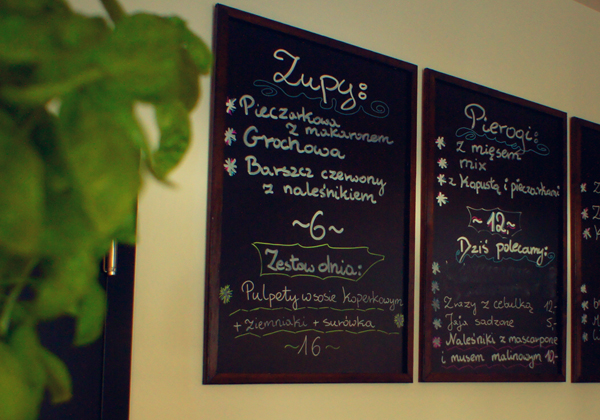 Zupy:
Pieczarkowa
z makaronem
Grochowa
Barszcz czerwony
z naleśnikiem
~6~
Zestaw dnia:
Pulpety w sosie koperkowym
+ ziemniaki + surówka
~16~
Pierogi:
z mięsem
mix
z kapustą i pieczarkami
~12,-
Dziś polecamy:
Zrazy z cebulką 12-
Jaja sadzone 5,-
Naleśniki z mascarpone
i musem malinowym 10-